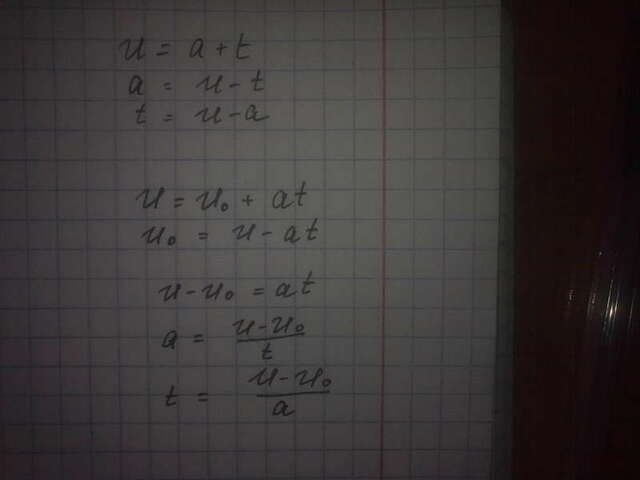 u = a + t
a = u - t
t = u - a
u = u₀ + at
u₀ = u - at
u - u₀ = at
a = (u - u₀)/t
t = (u - u₀)/a